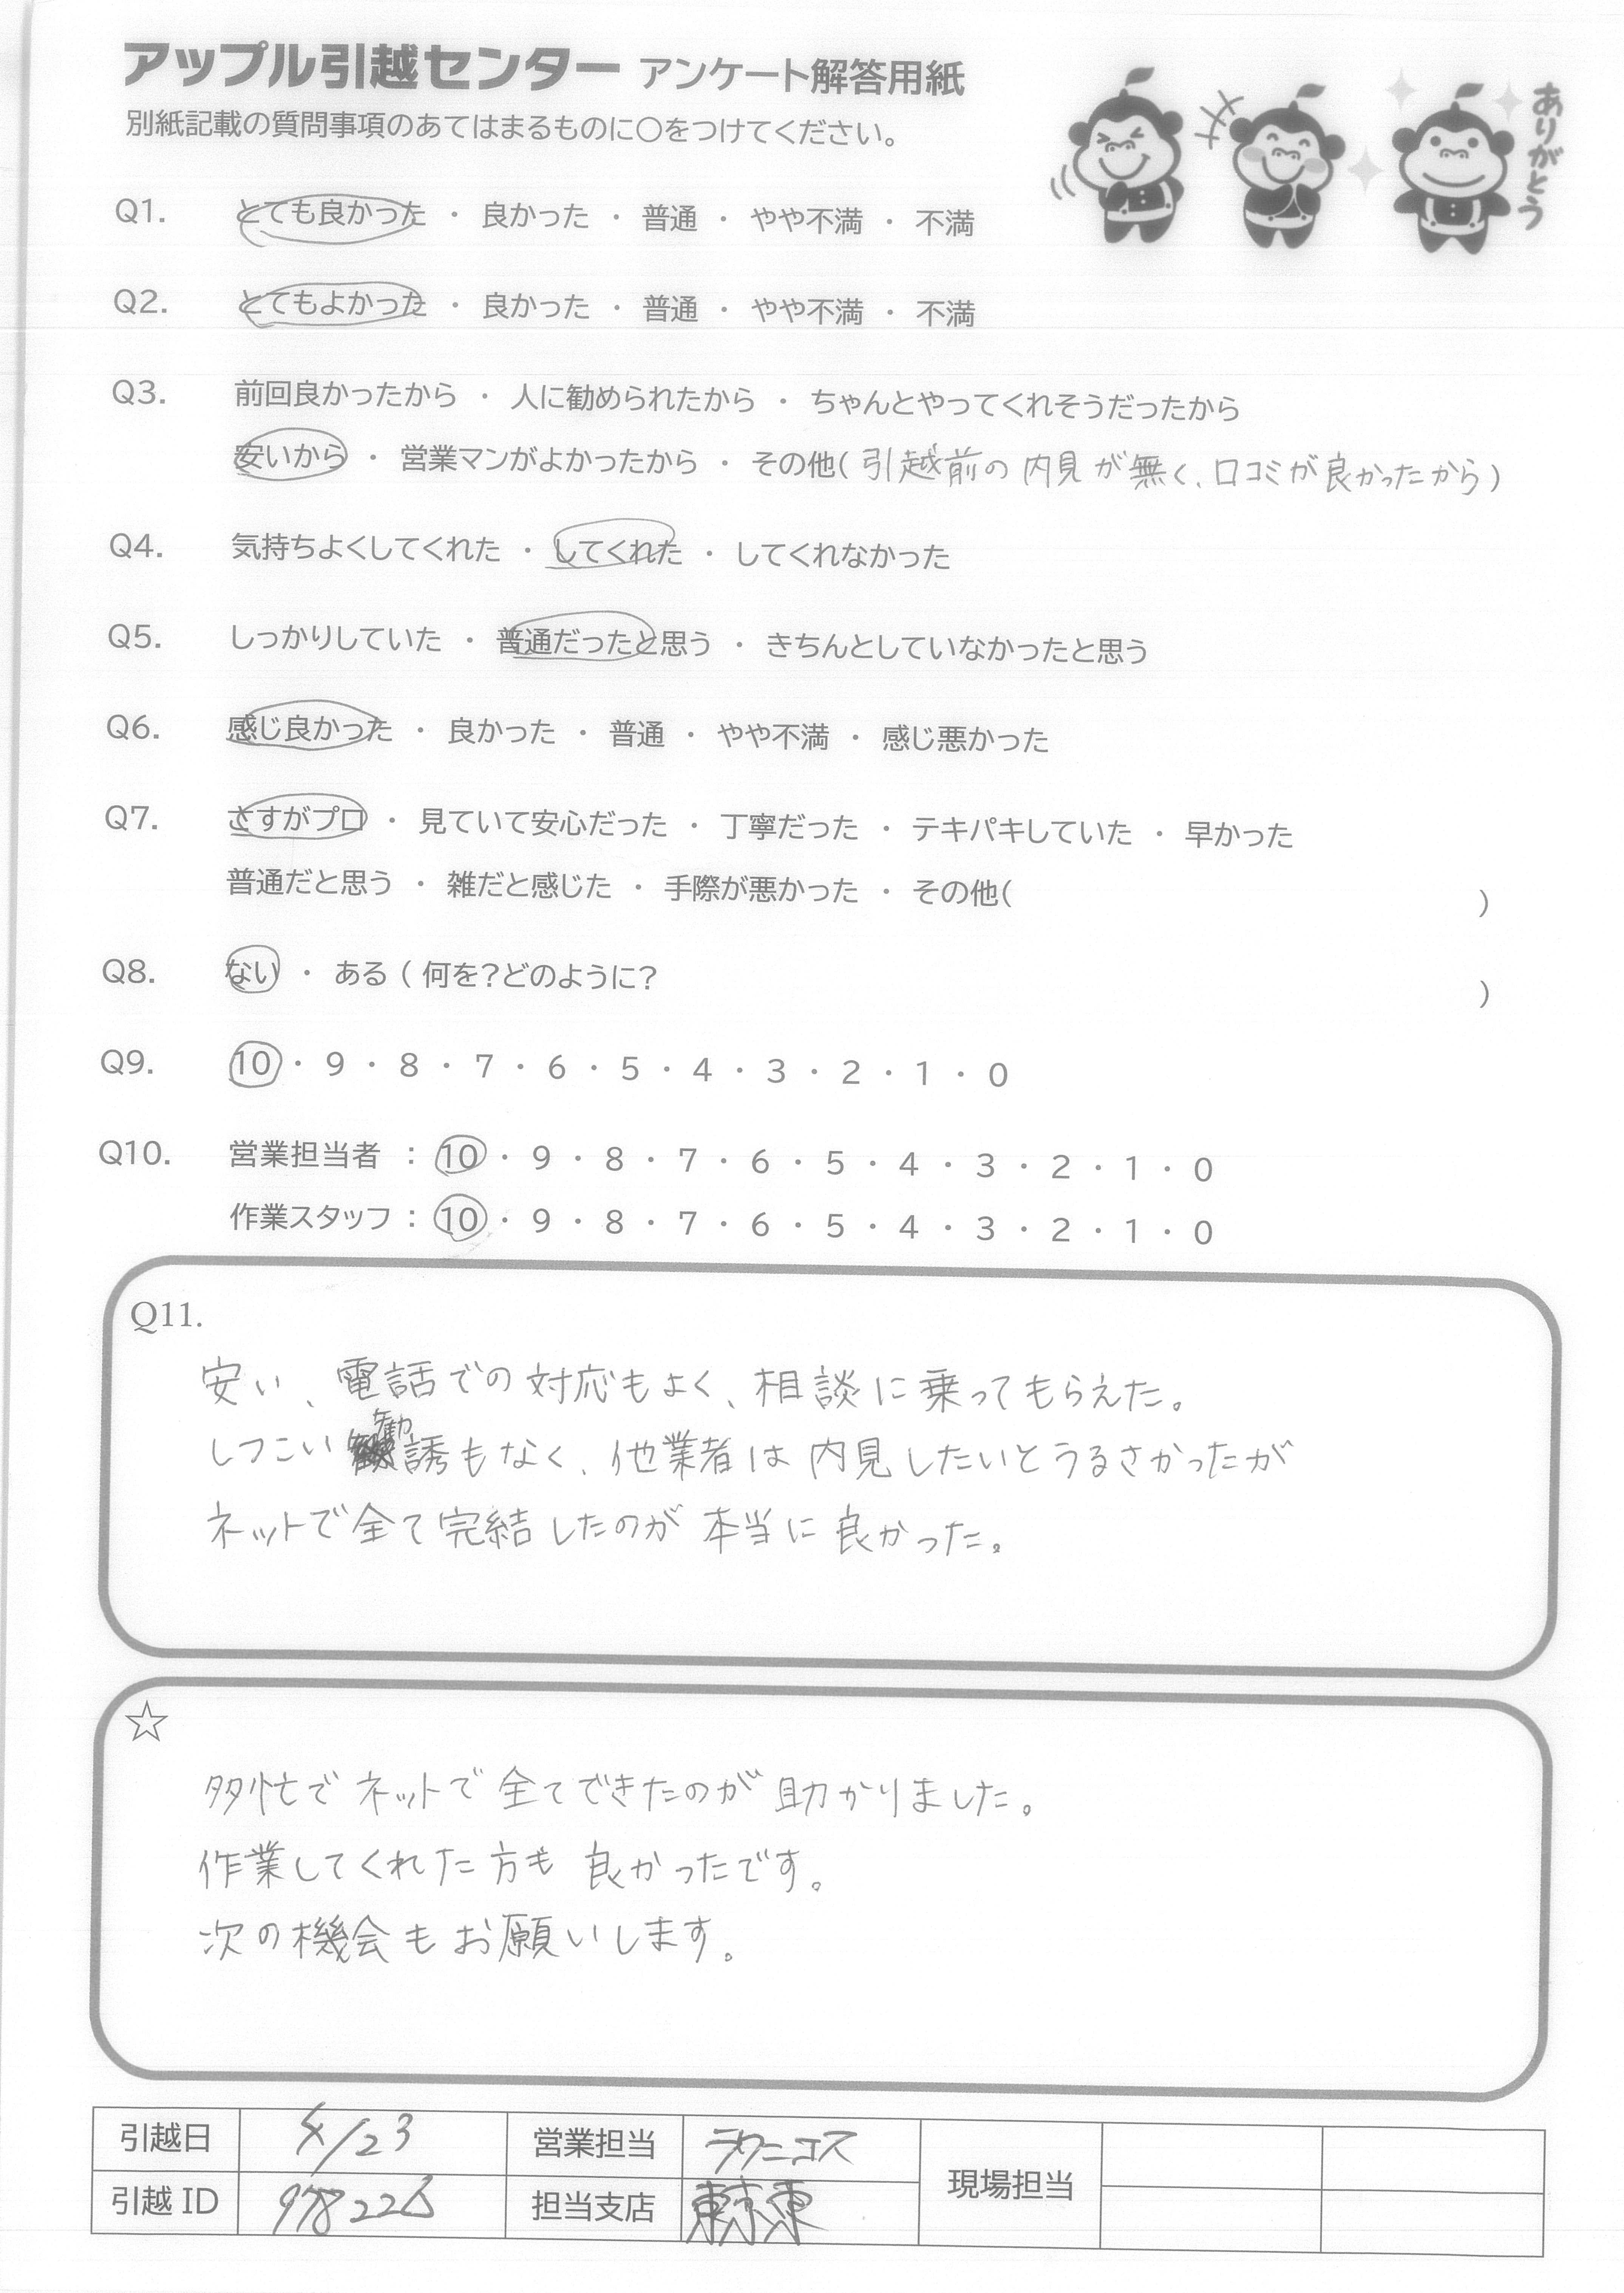 アップル引越センター アンケート解答用紙
別紙記載の質問事項のあてはまるものに〇をつけてください。
ありがとう
Q1. とても良かった ・ 良かった ・ 普通 ・ やや不満 ・ 不満
Q2. とてもよかった ・ 良かった ・ 普通 ・ やや不満 ・ 不満
Q3. 前回良かったから ・ 人に勧められたから ・ ちゃんとやってくれそうだったから
安いから ・ 営業マンがよかったから ・ その他( 引越前の内見が無く、口コミが良かったから )
Q4. 気持ちよくしてくれた ・ してくれた ・ してくれなかった
Q5. しっかりしていた ・ 普通だったと思う ・ きちんとしていなかったと思う
Q6. 感じ良かった ・ 良かった ・ 普通 ・ やや不満 ・ 感じ悪かった
Q7. さすがプロ ・ 見ていて安心だった ・ 丁寧だった ・ テキパキしていた ・ 早かった
普通だと思う ・ 雑だと感じた ・ 手際が悪かった ・ その他( )
Q8. ない ・ ある ( 何を?どのように? )
Q9. 10 ・ 9 ・ 8 ・ 7 ・ 6 ・ 5 ・ 4 ・ 3 ・ 2 ・ 1 ・ 0
Q10. 営業担当者 : 10 ・ 9 ・ 8 ・ 7 ・ 6 ・ 5 ・ 4 ・ 3 ・ 2 ・ 1 ・ 0
作業スタッフ : 10 ・ 9 ・ 8 ・ 7 ・ 6 ・ 5 ・ 4 ・ 3 ・ 2 ・ 1 ・ 0
Q11.
安い、電話での対応もよく、相談に乗ってもらえた。
しつこい勧誘もなく、他業者は内見したいとうるさかったが
ネットで全て完結したのが本当に良かった。
☆
多忙でネットで全てできたのが助かりました。
作業してくれた方も良かったです。
次の機会もお願いします。
引越日 4/23 営業担当 現場担当
引越ID 担当支店 東京東